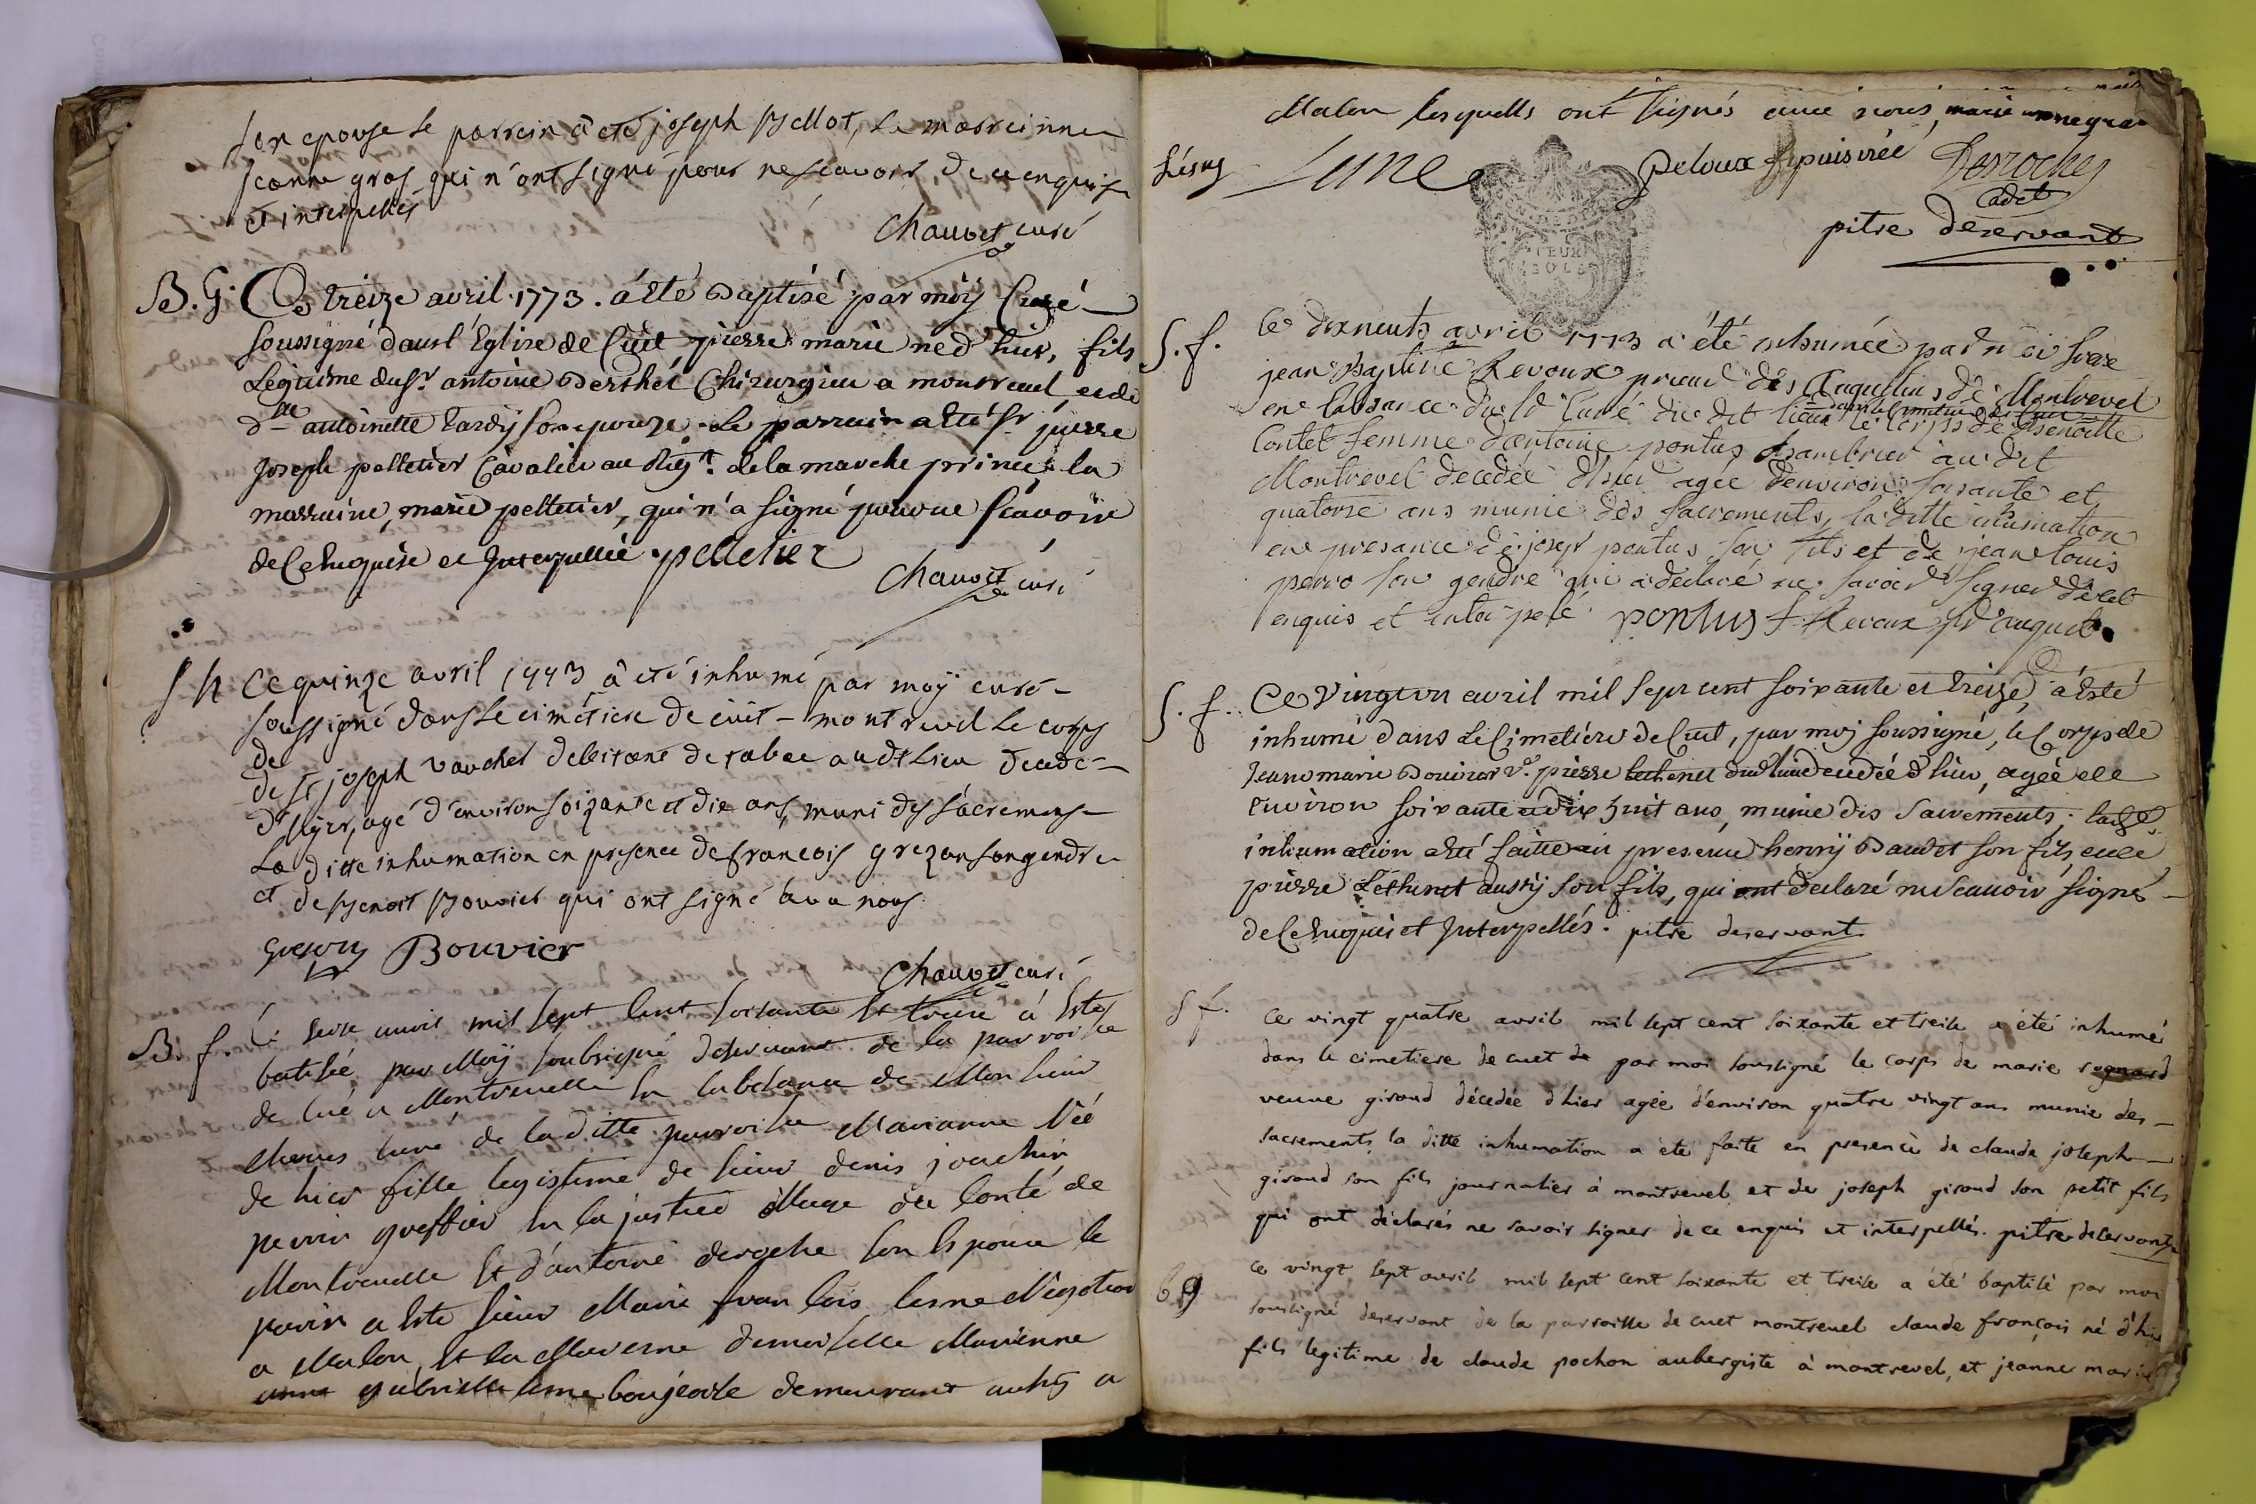 son epouse le parrein â eté joseph Bellot, la marreinne
jeanne gros qui n'ont signé pour ne scavoir de ce enquis
et interpellés
Chauvet curé
B. G. Ce treize avril 1773. a été Baptisé par moij Curé
soussigné dans l'Eglise de Cuet pierre marie né d'hier, fils
Legitime du Sr. antoine Berthet Chirurgien a montreuel, et de
dlle antoinette tardÿ son epouze. Le parrain a eté Sr pierre
joseph pelletier Cavalier au Régt. de la marche prince, la
marraine, marie pelletier, qui n'a signé pour ne scavoir
de Ce Enquise et Interpellée. pelletier
Chauvet curé
S h Ce quinze avril 1773 â eté inhumé par moÿ curé
soussigné dans le cimetiere de cuet - montreuel le corps
de
de Sr joseph vaucher debitant de tabac audt Lieu decedé
d'hÿer, agé d'environ soizante et dix ans, muni des sacremens
La ditte inhumation en presence de francois grezon son gendre
et de Benoit Bouvier qui ont signé avec nous
Grezon Bouvier
Chauvet curé
B. f Ce seize avril mil sept cent soixante et treize a Esté
batisée par Moÿ soubsigné deservant de la parroisse
de Cué a Montreuelle en labsance de Monsieur
Chauvet curé de la ditte parroisse Marianne Née
de hier fille legistime de sieur denis joachin
perrin greffier en la justice Mage du Conté de
Montreuelle Et d'antoine deroche son Espouse le
parin a Esté sieur Marie francois lesne Négotian
a Malon, Et la Mareine demoiselle Marienne
gabrielle lesne bourjeoise demeurant aussy a
Malon lesquells ont signés avec nous, marie anne
Lésne Peloux Desroches
cadet
pitre deservant
S. f. Ce dixneuf avril 1773 a été inhumée par moi frere
jean Baptiste Revoux prieur des Augustins de Montrevel
en labsance du Sr Curé du dit lieu dans le cimetiere de Cuet le corps de Benoitte
Contet femme d'antoine pontus chambrier au dit
Montrevel decedée d'hier agée d'environ soisante et
quatorse ans munie des sacrements, la ditte inhumation
en presance de joseph pontus son fils et de jean louis
perro son gendre qui a declaré ne savoir signer de ce
enquis et interpelé. pontus f. Revoux pr augustin
S. f. Ce Vingt un avril mil sept cent soixante et treize, a Esté
inhumé dans le Cimetiere de Cuet, par moj soussigné, le Corps de
Jeanne marie Bouvier ve. pierre Lethenet dudt lieu decedée d'hier, agée de
environ soixante et dix huit ans, munie des sacrements, ladte
inhumation a été faitte en presence henrÿ Baudet son fils et de
pierre Léthenet aussÿ son fils, qui ont declaré ne scauoir signer
de Ce Enquis et Interpellés. pitre deservant
S f. Ce vingt quatre avril mil sept cent soixante et treise a été inhumé
dans le cimetiere de cuet de par moi soussigné le corps de marie rognard
veuve giroud décedée d'hier agée d'environ quatre vingt ans munie des
sacrements, la ditte inhumation a été faite en presence de claude joseph
giroud son fils journalier à montrevel et de joseph giroud son petit fils
qui ont declarés ne savoir signer de ce enquis et interpellés. pitre deservant
b g Ce vingt sept avril mil sept cent soixante et treise a été baptisé par moi
soussigné deservant de la parroisse de cuet montrevel claude françois né d'hier
fils legitime de claude pochon aubergiste à montrevel, et jeanne marie